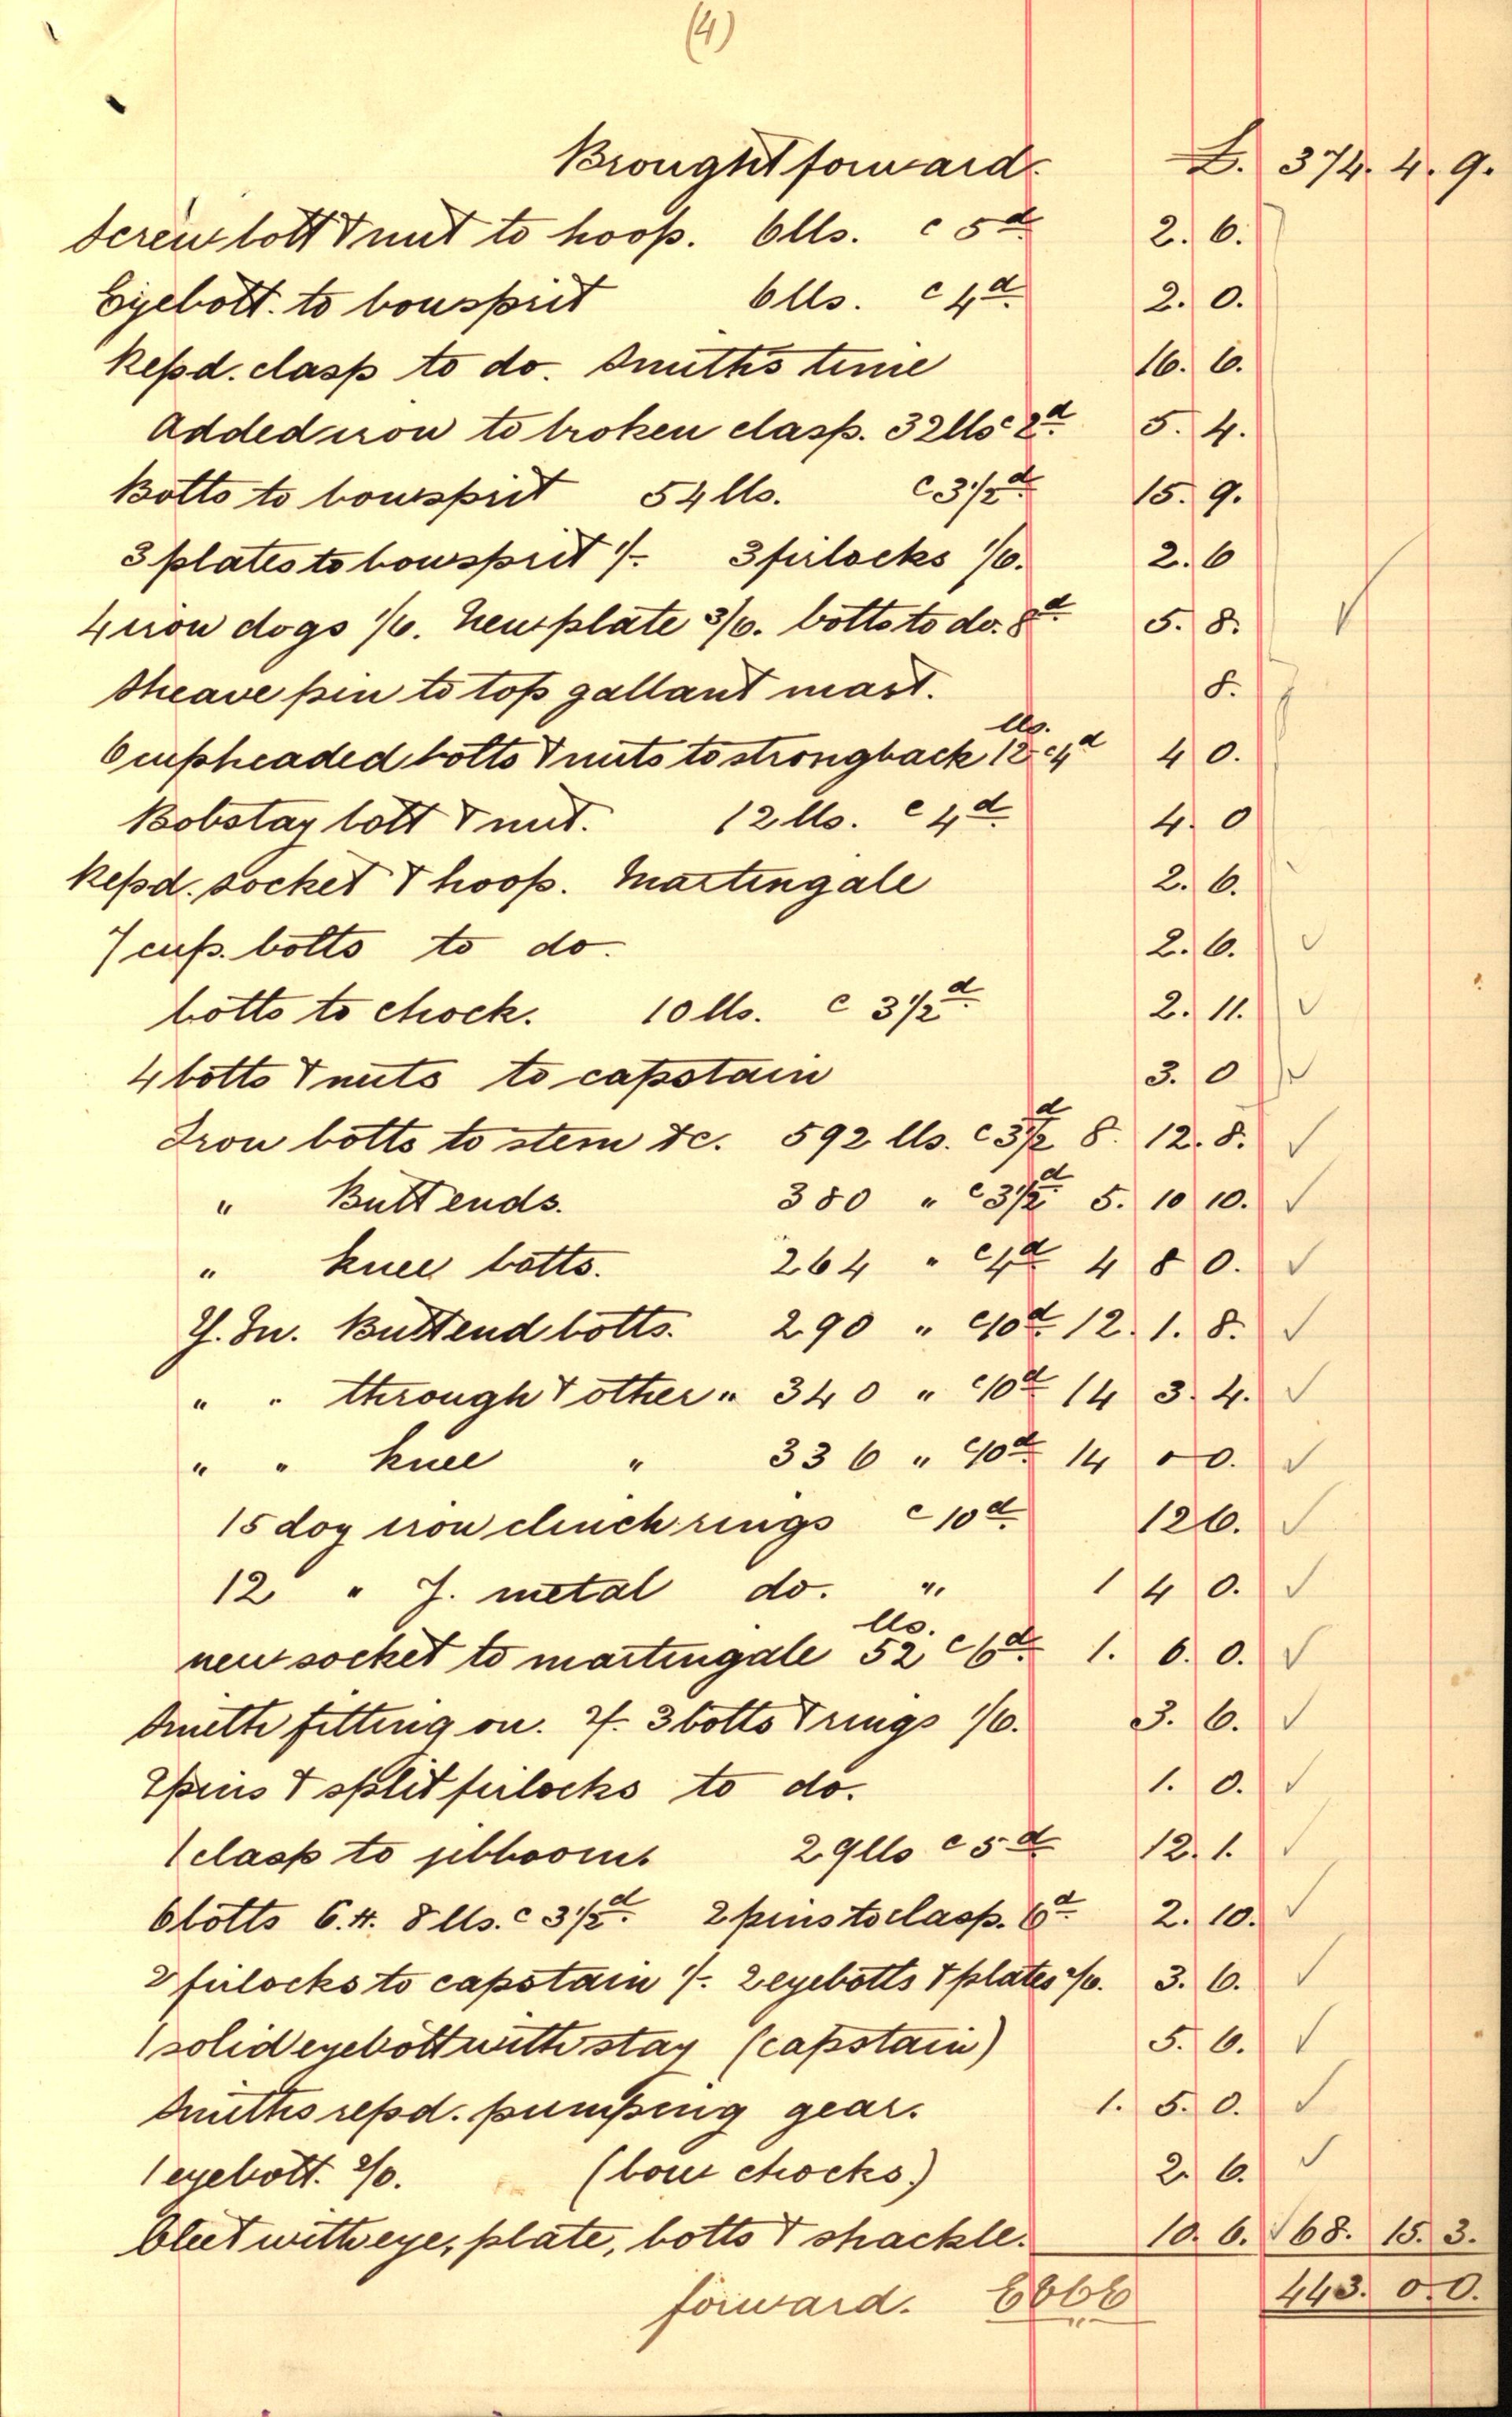 (4)
Brought forward. £. 374. 4. 9.
Screw bolt & nut to hoop. 6lbs. @ 5d. 2. 6.
Eyebolt. to bowsprit 6lbs. @ 4d. 2. 0.
Repd. clasp to do. Smiths time 16. 6.
Added iron to broken clasp. 32lbs @ 2d. 5. 4.
Bolts to bowsprit 54 lbs. @ 3½d. 15. 9.
3 plates to bowsprit 1/-. 3 firlocks 1/6. 2. 6
4 iron dogs 1/6. New plate 3/6. bolts to do. 8d. 5. 8.
Sheave pin to top gallant mast. 8.
6 cupheaded bolts & nuts to strongback 12 lbs. @ 4d 4 0.
Bobstay bolt & nut. 12 lbs. @ 4d. 4. 0
Repd. socket & hoop. Martingale 2. 6.
7 cup. bolts to do. 2. 6.
bolts to chock. 10 lbs. @ 3½d. 2. 11.
4 bolts & nuts to capstain 3. 0
Iron bolts to stem &c. 592 lbs. @ 3½d 8. 12. 8.
" Butt ends. 380 " @ 3½d. 5. 10 10.
" knee bolts. 264 " @ 4d 4 8 0.
Y. M. Buttend bolts. 290 " @ 10d. 12. 1. 8.
" " through & other " 340 " @ 10d 14 3. 4.
" " knee " 336 " @ 10d. 14 0 0.
15 doz iron clinch rings @ 10d. 12 6.
12 " Y. metal do. " 1 4 0.
new socket to martingale 52 lbs. @ 6d. 1. 6. 0.
Smith fitting on. 2/-. 3 bolts & rings 1/6. 3. 6.
2 pins & split firlocks to do. 1. 0.
1 clasp to jibboom. 29lbs @ 5d 12. 1.
6 bolts 8 lbs. @ 3½d. 2 pins to clasp. 6d. 2. 10.
2 firlocks to capstain 1/-. 2 eyebolts & plates 2/6. 3. 6.
1 solid eyebolt with stay (capstain) 5. 6.
Smiths repd. pumping gear. 1. 5. 0.
1 eyebolt. 2/6. (bow chocks.) 2. 6.
Cleet with eye, plate, bolts & shackle. 10. 6. 68. 15. 3.
forward. 443. 0. 0.